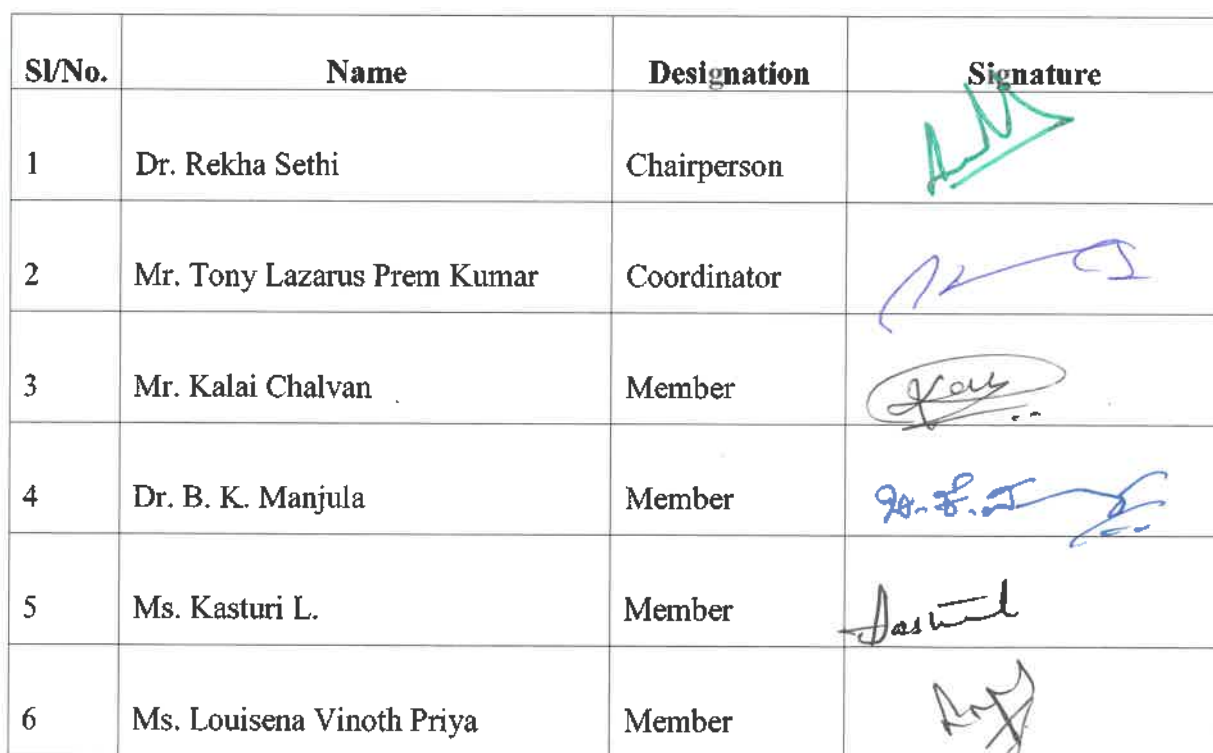 Sl/No. Name Designation Signature
1 Dr. Rekha Sethi Chairperson
2 Mr. Tony Lazarus Prem Kumar Coordinator
3 Mr. Kalai Chalvan Member
4 Dr. B. K. Manjula Member
5 Ms. Kasturi L. Member
6 Ms. Louisena Vinoth Priya Member